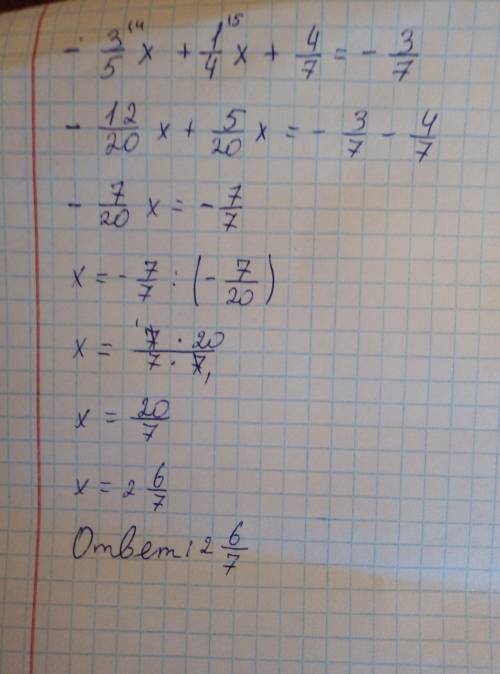 - 3/5 ⁽⁴ x + 1/4 ⁽⁵ x + 4/7 = - 3/7
- 12/20 x + 5/20 x = - 3/7 - 4/7
- 7/20 x = - 7/7
x = - 7/7 : (- 7/20)
x = 7 · 20 / 7 · 7
x = 20/7
x = 2 6/7
Ответ: 2 6/7